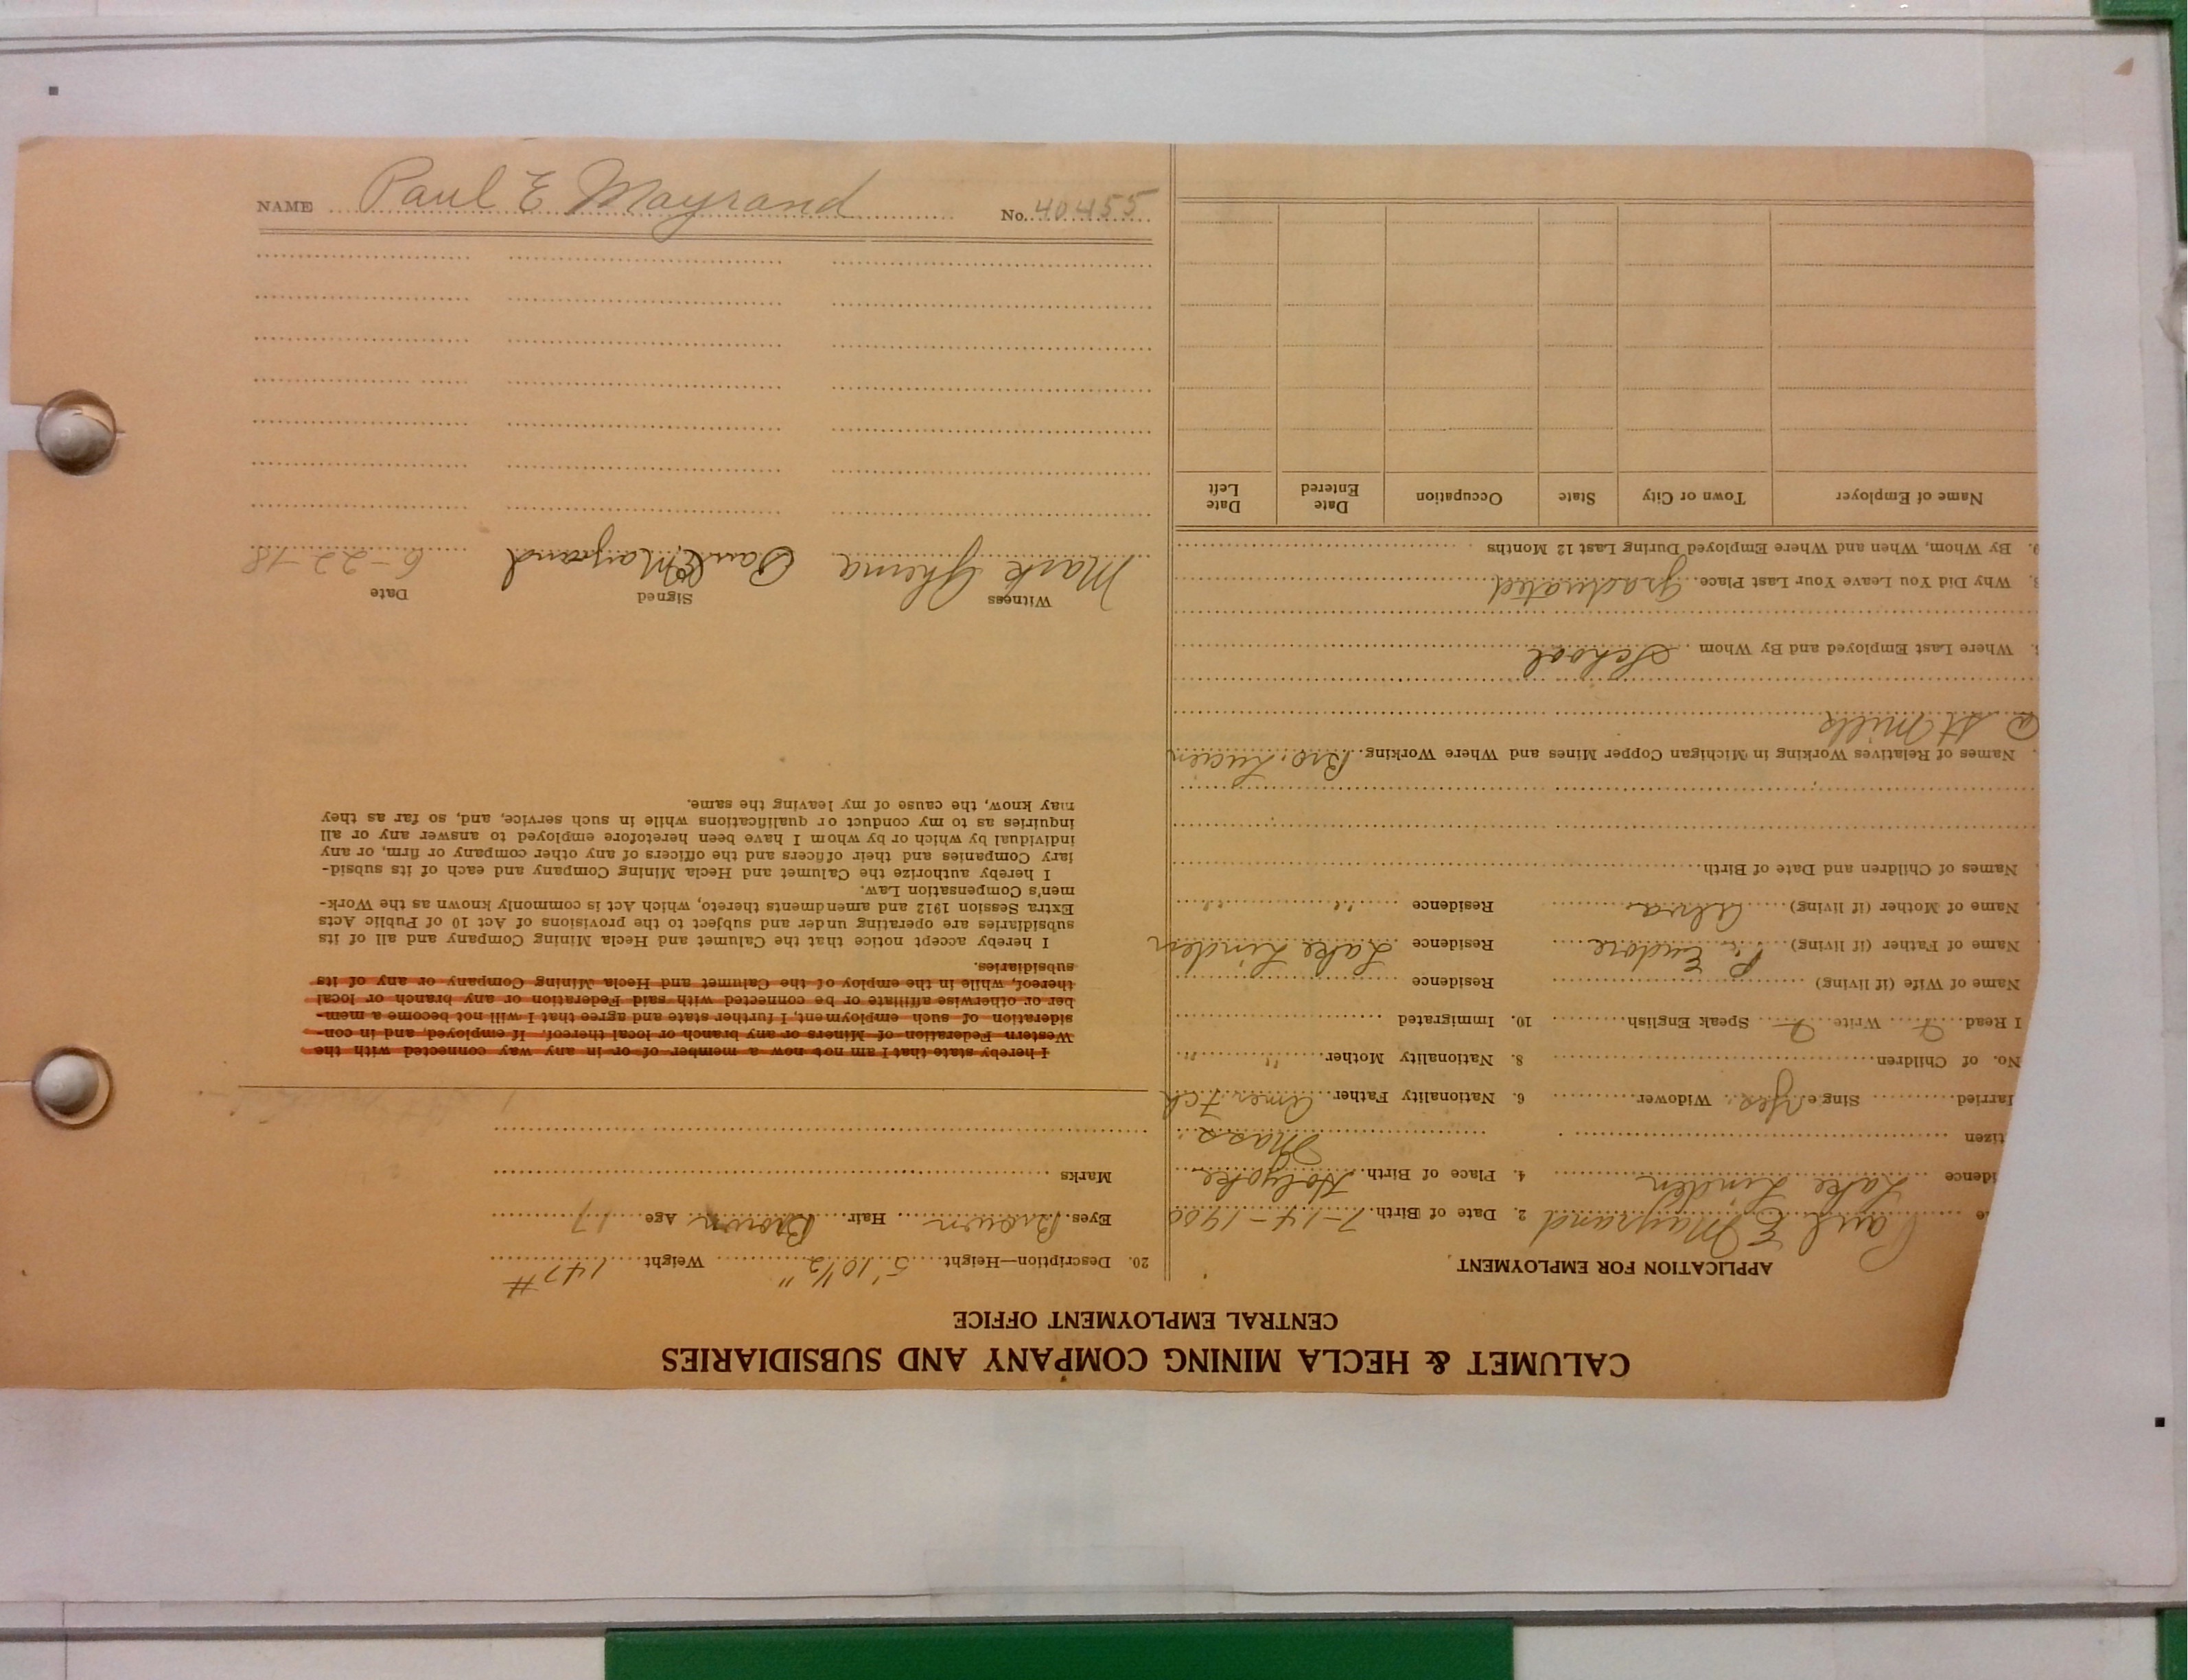 NAME Paul E Mayrand No. 40455
CALUMET & HECLA MINING COMPANY AND SUBSIDIARIES
CENTRAL EMPLOYMENT OFFICE
APPLICATION FOR EMPLOYMENT
e Paul E Mayrand 2. Date of Birth 7-14-1900
idence Lake Linden 4. Place of Birth Holyoke
tizen Mass
larried Single Yes Widower 6. Nationality Father Amer Fch
No. of Children 8. Nationality Mother " "
I Read Write Speak English 10. Immigrated
Name of Wife (if living) Residence
Name of Father (if living) Eudore Residence Lake Linden
Name of Mother (if living) Residence " "
Names of Children and Date of Birth
Names of Relatives Working in Michigan Copper Mines and Where Working. Bro. Lucien
@ St Mills
Where Last Employed and By Whom School
Why Did You Leave Your Last Place. graduated
9. By Whom, When and Where Employed During Last 12 Months
Name of Employer Town or City State Occupation Date Entered Date Left
20. Description—Height 5' 10 1/2" Weight 147 #
Eyes Brown Hair Brown Age 17
Marks
I hereby state that I am not now a member of or in any way connected with the
Western Federation of Miners or any branch or local thereof. If employed, and in con-
sideration of such employment, I further state and agree that I will not become a mem-
ber or otherwise affiliate or be connected with said Federation or any branch or local
thereof, while in the employ of the Calumet and Hecla Mining Company or any of its
subsidiaries.
I hereby accept notice that the Calumet and Hecla Mining Company and all of its
subsidiaries are operating under and subject to the provisions of Act 10 of Public Acts
Extra Session 1912 and amendments thereto, which Act is commonly known as the Work-
men's Compensation Law.
I hereby authorize the Calumet and Hecla Mining Company and each of its subsid-
iary Companies and their officers and the officers of any other company or firm, or any
individual by which or by whom I have been heretofore employed to answer any or all
inquiries as to my conduct or qualifications while in such service, and, so far as they
may know, the cause of my leaving the same.
Witness Signed Date
Mark Paul E. Mayrand 6-22-18